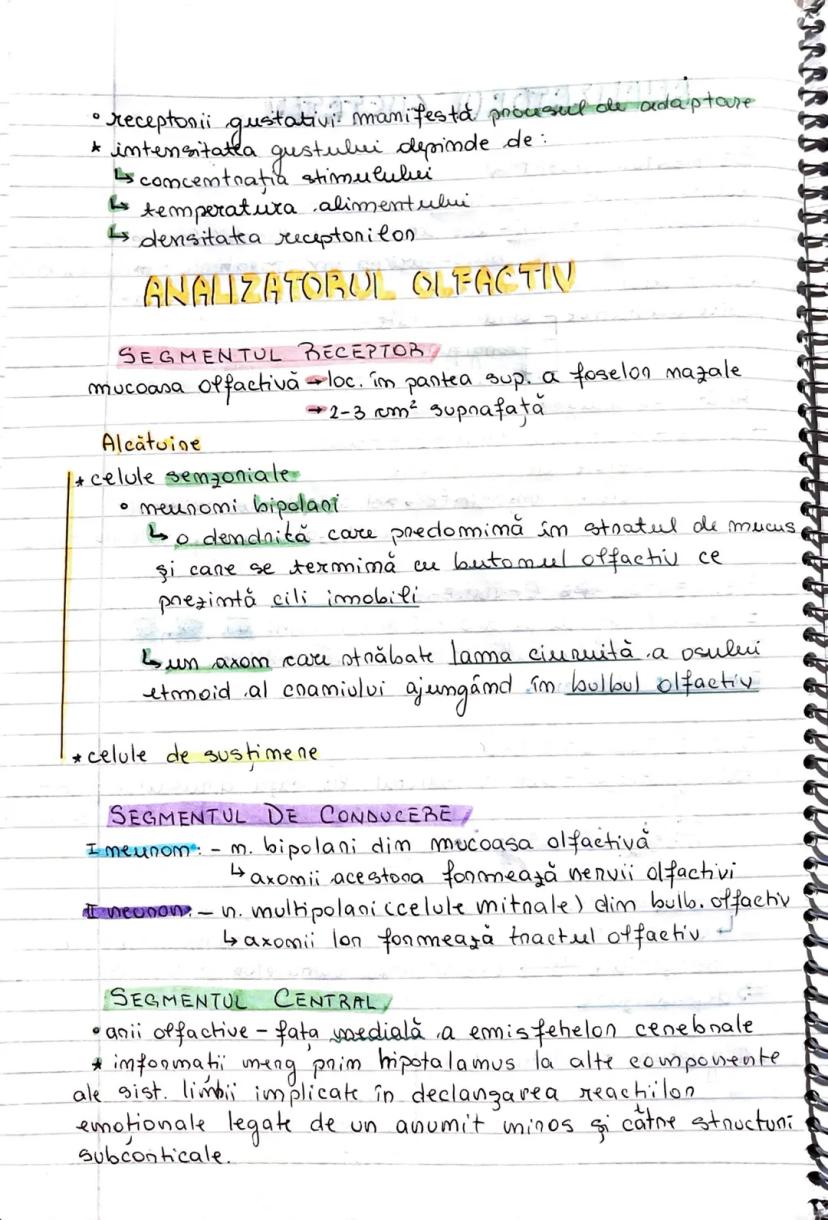 • receptorii gustativi manifestă procesul de adaptare
* intensitatea gustului depinde de:
↳ concentrația stimulului
↳ temperatura alimentului
↳ densitatea receptorilor
ANALIZATORUL OLFACTIV
SEGMENTUL RECEPTOR
mucoasa olfactivă → loc. în partea sup. a foselor nazale
→ 2-3 cm² suprafață
Alcătuire
* celule senzoriale
• neuroni bipolari
↳ o dendrită care predomină în stratul de mucus
și care se termină cu butonul olfactiv ce
prezintă cili imobili
↳ un axon care străbate lama ciuruită a osului
etmoid al craniului ajungând în bulbul olfactiv
* celule de susținere
SEGMENTUL DE CONDUCERE
I neuron: - n. bipolari din mucoasa olfactivă
↳ axonii acestora formează nervii olfactivi
II neuron: - n. multipolari (celule mitrale) din bulb. olfactiv
↳ axonii lor formează tractul olfactiv
SEGMENTUL CENTRAL
• arii olfactive - fața medială a emisferelor cerebrale
* informații merg prin hipotalamus la alte componente
ale sist. limbii implicate în declanzarea reacțiilor
emoționale legate de un anumit miros și către structuri
subcorticale.